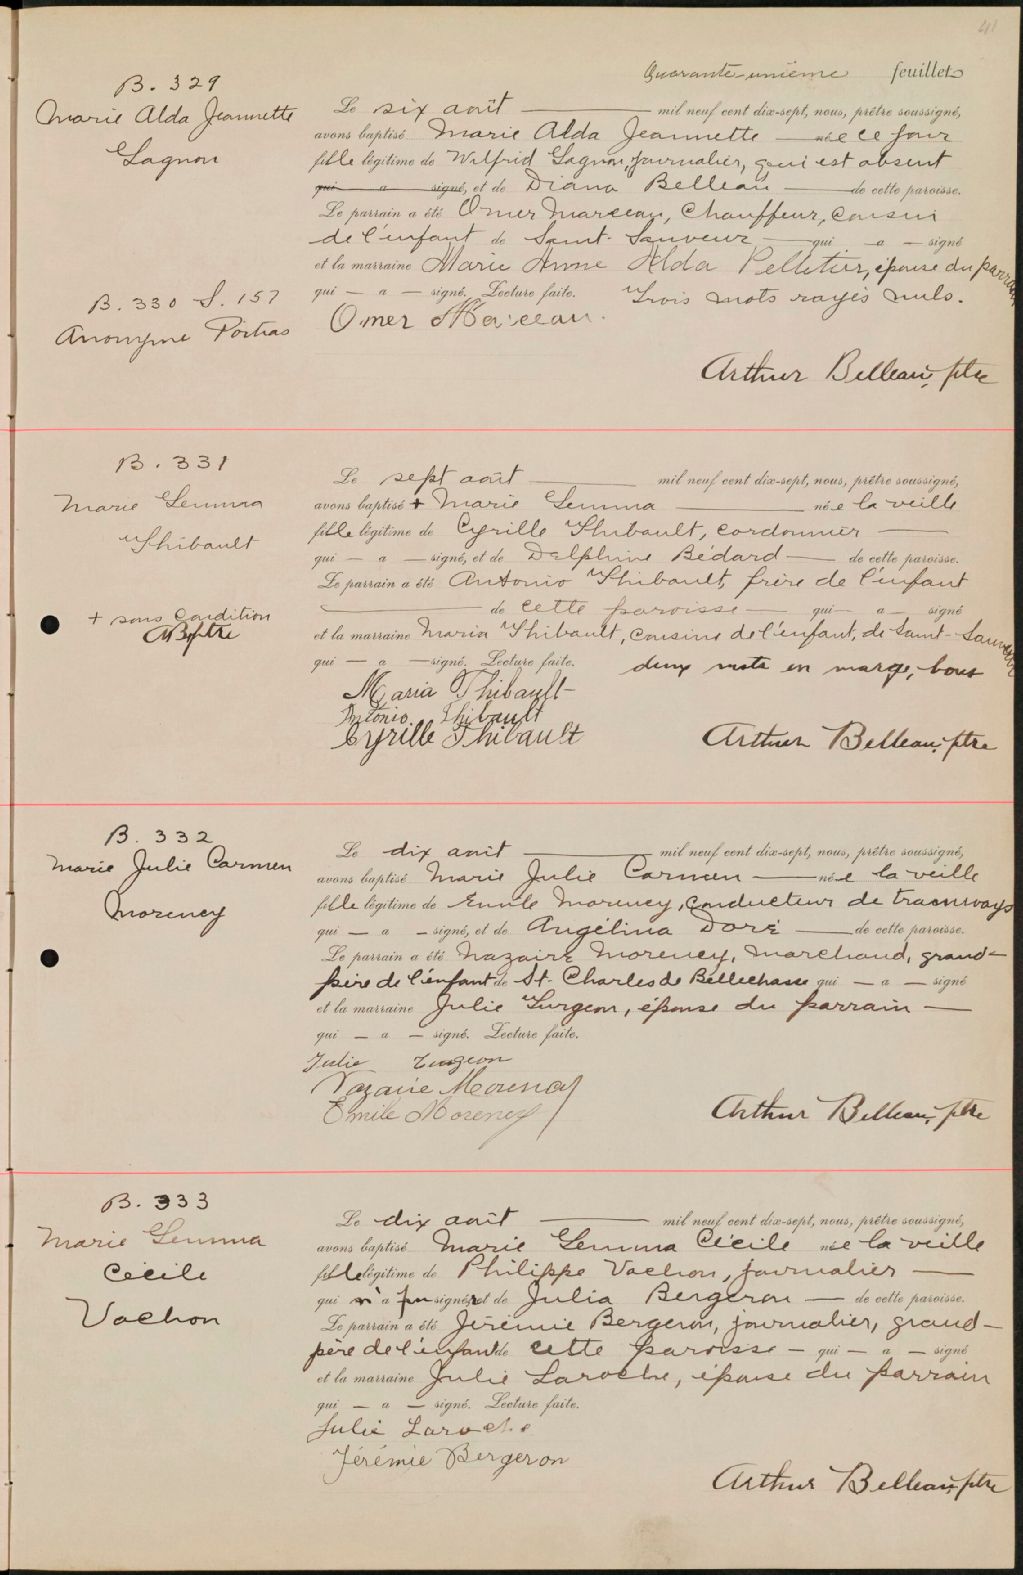 41
Quarante-unième feuillet
B. 329
Marie Alda Jeannette
Gagnon
Le six août mil neuf cent dix-sept, nous, prêtre soussigné,
avons baptisé Marie Alda Jeannette née ce jour
fille légitime de Wilfrid Gagnon, journalier, qui est absent
qui a signé, et de Diana Belleau de cette paroisse.
Le parrain a été Omer Marceau, Chauffeur, cousin
de l'enfant de Saint-Sauveur qui — a — signé
et la marraine Marie Anne Alda Pelletier, épouse du parrain
qui — a — signé. Lecture faite. Trois mots rayés nuls.
Omer Marceau.
Arthur Belleau, ptre
B. 330 S. 157
Anonyme Poitras
B. 331
Marie Gemma
Thibault
+ sous condition
AB ptre
Le sept août mil neuf cent dix-sept, nous, prêtre soussigné,
avons baptisé + Marie Gemma née la veille
fille légitime de Cyrille Thibault, cordonnier
qui — a — signé, et de Delphine Bédard — de cette paroisse.
Le parrain a été Antonio Thibault, frère de l'enfant
de cette paroisse — qui — a — signé
et la marraine Maria Thibault, cousine de l'enfant, de Saint-Sauveur
qui — a — signé. Lecture faite. deux mots en marge, bons
Maria Thibault
Antonio Thibault
Cyrille Thibault
Arthur Belleau, ptre
B. 332
Marie Julie Carmen
Morency
Le dix août mil neuf cent dix-sept, nous, prêtre soussigné,
avons baptisé Marie Julie Carmen — née la veille
fille légitime de Emile Morency, conducteur de tramways
qui — a — signé, et de Angélina Doré — de cette paroisse.
Le parrain a été Nazaire Morency, marchand, grand-
père de l'enfant de St-Charles de Bellechasse qui — a — signé
et la marraine Julie Turgeon, épouse du parrain —
qui — a — signé. Lecture faite.
Julie Turgeon
Nazaire Morency
Emile Morency
Arthur Belleau, ptre
B. 333
Marie Gemma
Cécile
Vachon
Le dix août mil neuf cent dix-sept, nous, prêtre soussigné,
avons baptisé Marie Gemma Cécile née la veille
fille légitime de Philippe Vachon, journalier —
qui n'a pu signer, et de Julia Bergeron — de cette paroisse.
Le parrain a été Jérémie Bergeron, journalier, grand-
père de l'enfant de cette paroisse — qui — a — signé
et la marraine Julie Laroche, épouse du parrain
qui — a — signé. Lecture faite.
Julie Laroche
Jérémie Bergeron
Arthur Belleau, ptre